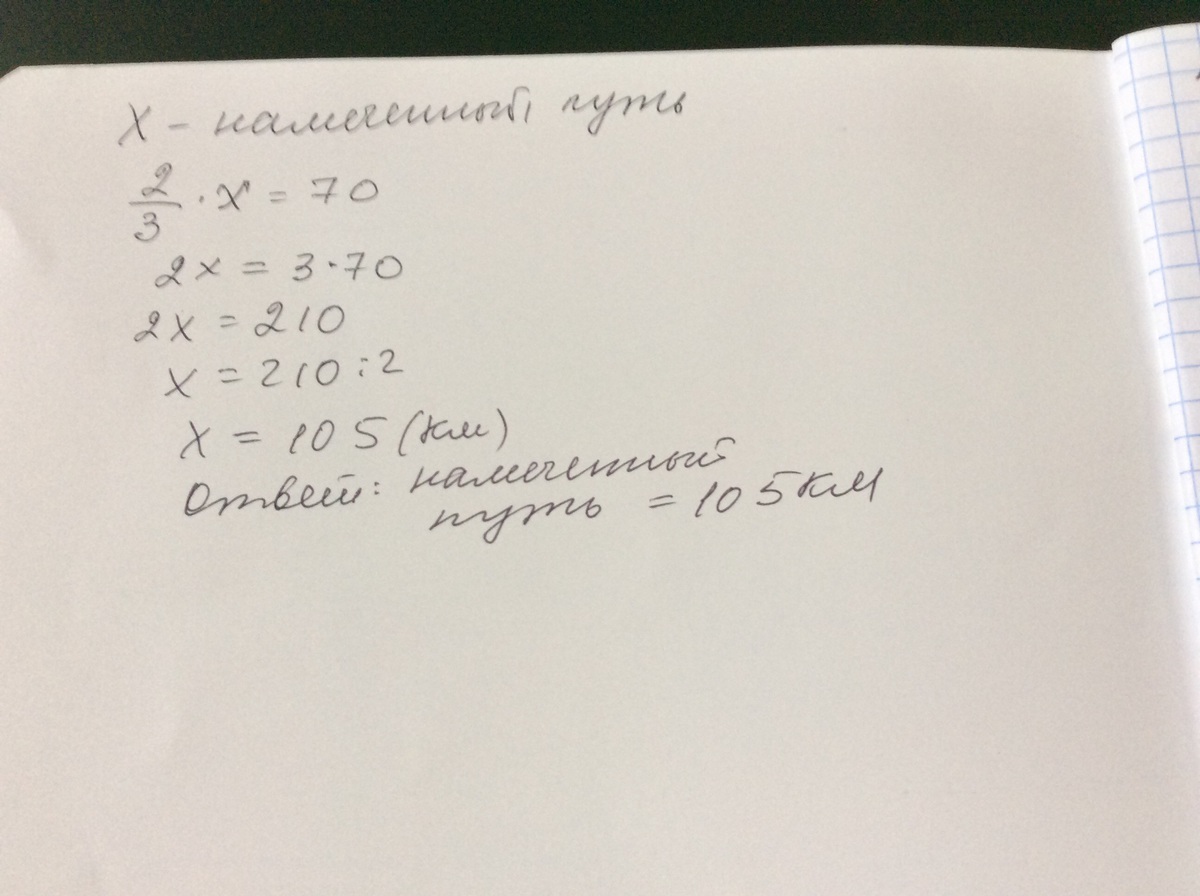 X – намеченный путь
2/3 · x = 70
2x = 3·70
2x = 210
x = 210 : 2
x = 105 (км)
Ответ: намеченный
путь = 105 км